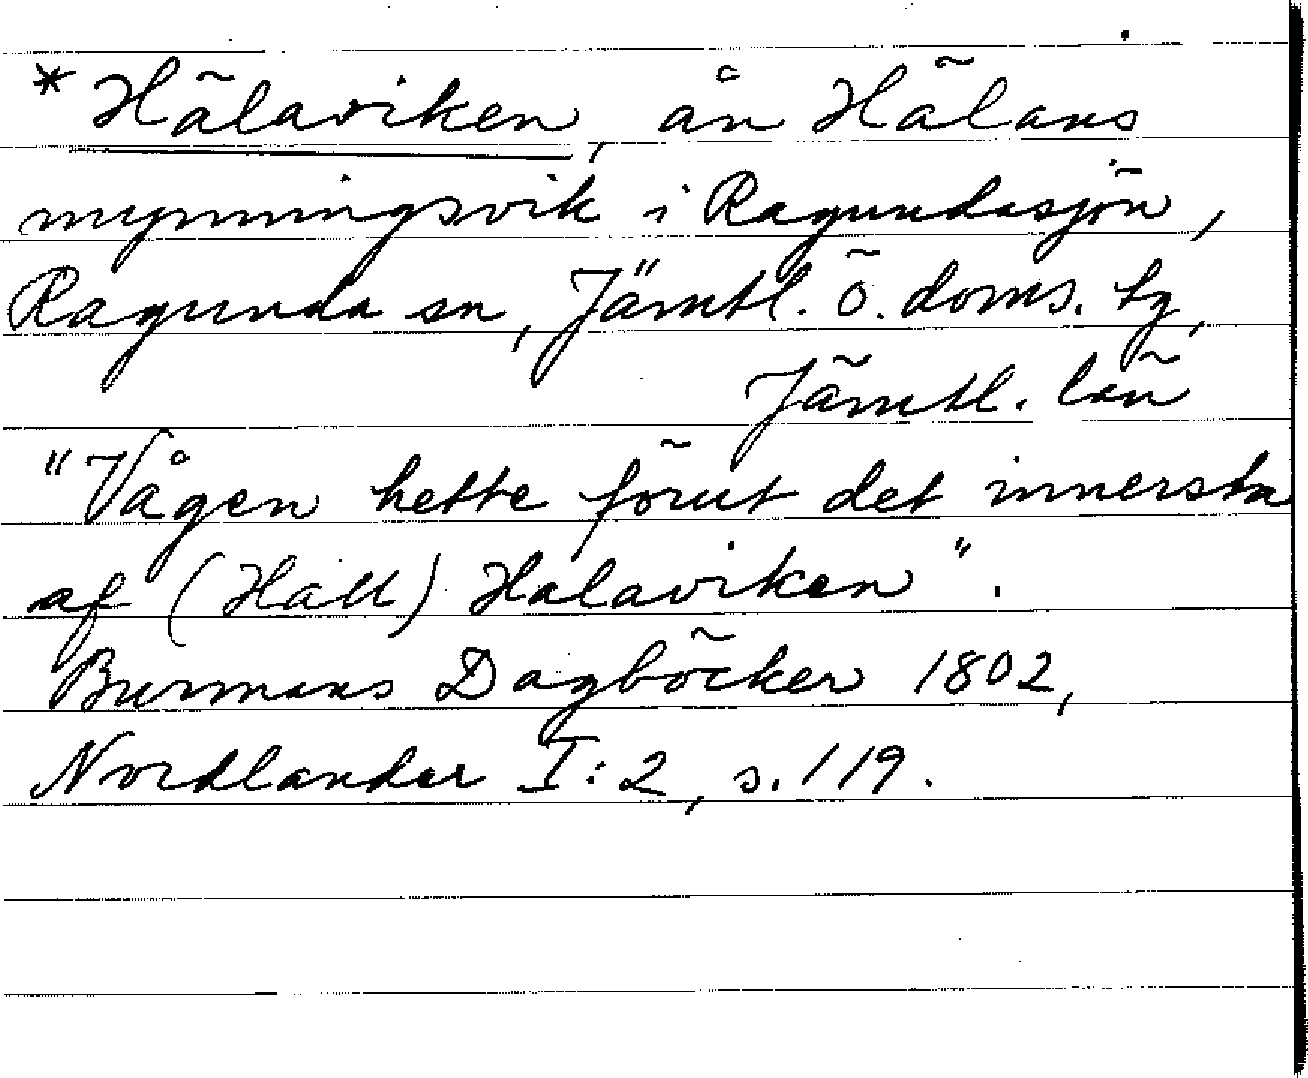 *Hälaviken, ån Hälans
mynningsvik i Ragundasjön,
Ragunda sn, Jämtl. ö. doms. tg,
Jämtl. län
"Vågen hette förut det innersta
af (Häll) Halaviken".
Burmans Dagböcker 1802,
Nordlander I:2, s. 119.